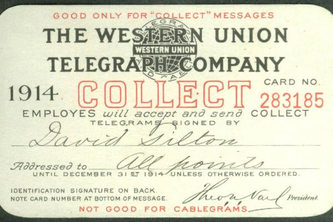 GOOD ONLY FOR "COLLECT" MESSAGES
THE WESTERN UNION
WESTERN UNION
TELEGRAPH COMPANY
CARD NO.
1914 COLLECT 283185
EMPLOYES will accept and send COLLECT
TELEGRAMS SIGNED BY
David Silton
Addressed to All points
UNTIL DECEMBER 31ST 1914 UNLESS OTHERWISE ORDERED.
IDENTIFICATION SIGNATURE ON BACK.
NOTE CARD NUMBER AT BOTTOM OF MESSAGE.
Theo. N. Vail President
NOT GOOD FOR CABLEGRAMS